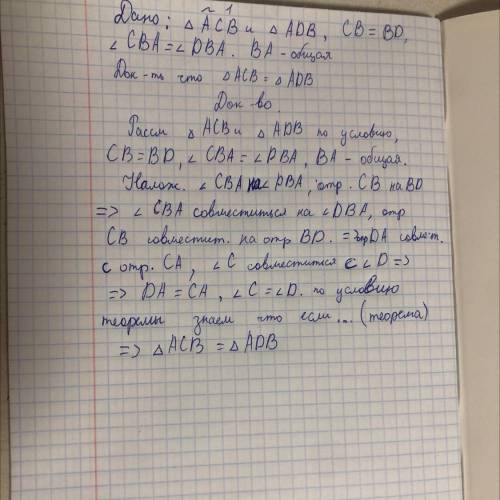 ~ 1
Дано: △ ACB и △ ADB, CB = BD,
∠ CBA = ∠ DBA. BA - общая
Док-ть что △ ACB = △ ADB
Док-во.
Рассм △ ACB и △ ADB по условию,
CB = BD, ∠ CBA = ∠ DBA, BA - общая.
Налож. ∠ CBA на ∠ DBA, отр. CB на BD
=> ∠ CBA совместиться на ∠ DBA, отр
CB совместит. на отр BD. => отр DA совм-т.
с отр. CA, ∠ C совместиться с ∠ D =>
=> DA = CA, ∠ C = ∠ D. по условию
теоремы знаем что если... (теорема)
=> △ ACB = △ ADB